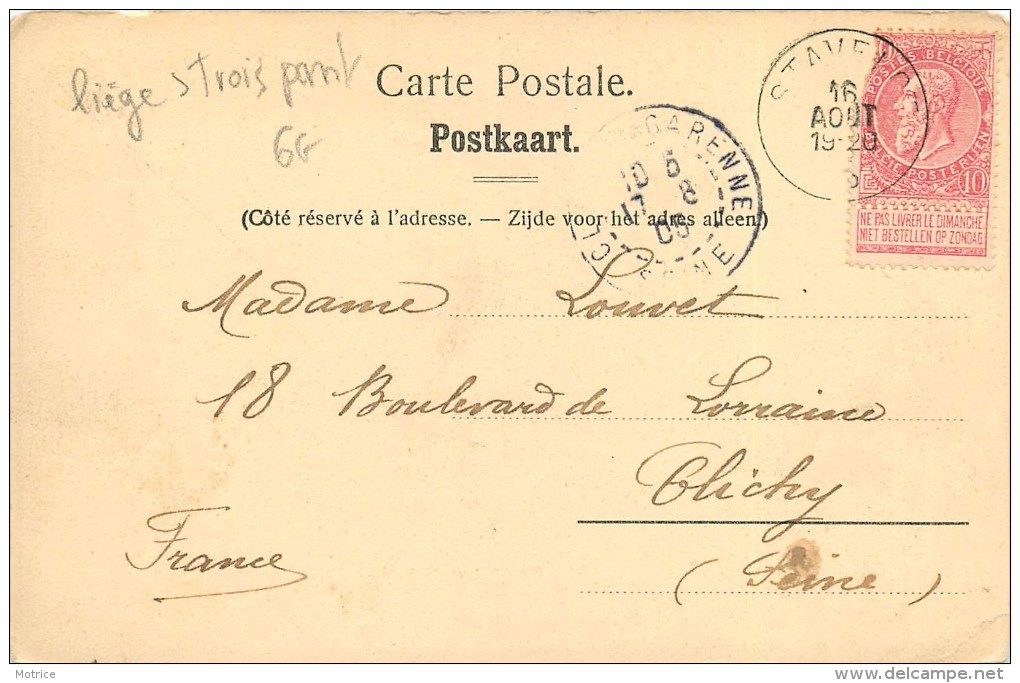 liège 3 trois pont
6€
Carte Postale.
Postkaart.
(Côté réservé à l'adresse. — Zijde voor het adres alleen.)
STAVELOT
16
AOUT
19-20
POSTES BELGIQUE
BELGIE POSTERIJEN
10
NE PAS LIVRER LE DIMANCHE
NIET BESTELLEN OP ZONDAG
GARENNE
10 5
17 8
05
SEINE
Madame Louvet
18 Boulevard de Lorraine
Clichy
France
(Seine)
Motrice
delcampe.net